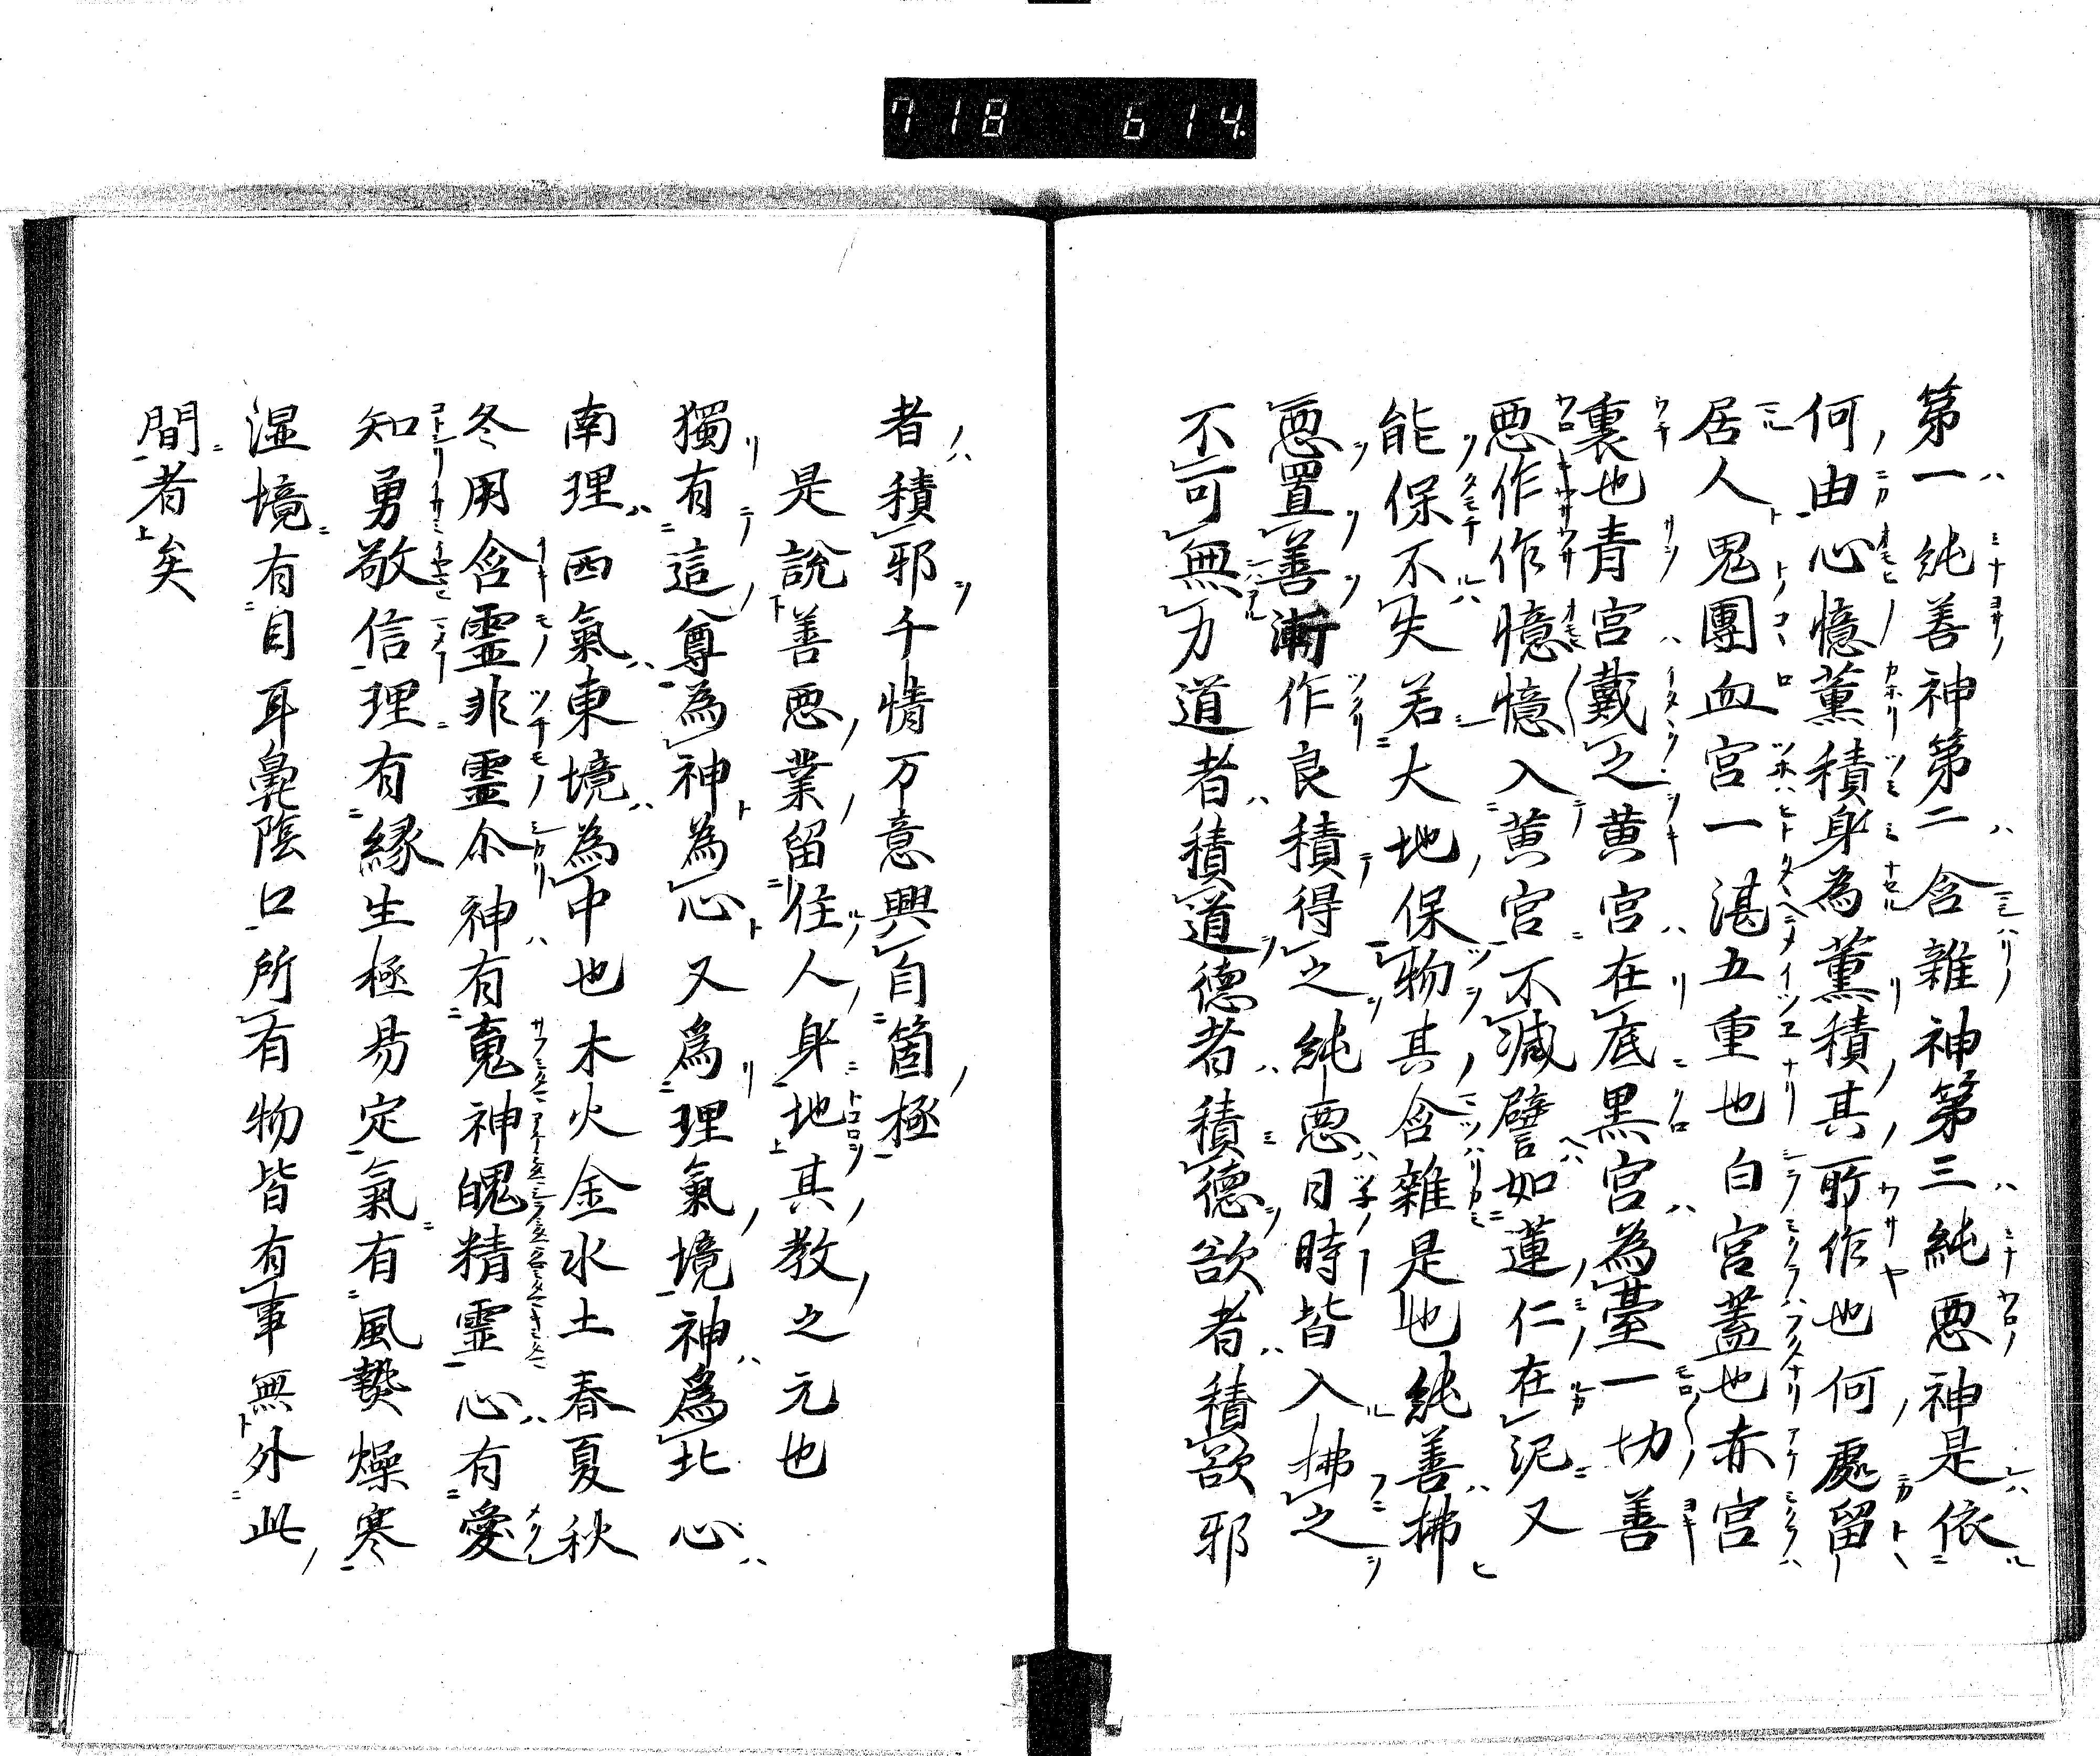 718 614.
第一純善神第二含雜神第三純悪神是依
何由心憶薫積身為薫積其所作也何處留
居人鬼團血宮一湛五重也白宮蓋也赤宮
裏也青宮戴之黄宮在底黒宮為臺一切善
悪作作憶憶入黄宮不減譬如蓮仁在泥又
能保不失若大地保物其含雜是也純善拂
悪置善漸作良積得之純悪日時皆入拂之
不可無力道者積道德者積德欲者積欲邪
者積邪千情万意興自箇極
是說善悪業留住人身地其教之元也
獨有這尊為神為心又為理氣境神為北心
南理西氣東境為中也木火金水土春夏秋
冬用含霊非霊尒神有䰟神魄精霊心有愛
知勇敬信理有縁生極易定氣有風𤍠燥寒
湿境有目耳鼻陰口所有物皆有事無外此
間者矣